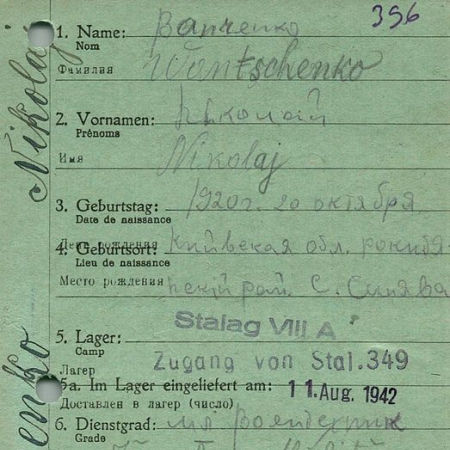 396
1. Name: Ванченко
Nom
Фамилия Wontschenko
2. Vornamen: Николай
Prénoms
Имя Nikolaj
3. Geburtstag: 1920г. 20 октября
Date de naissance
День рождения
4. Geburtsort: Киівская обл. рокитя-
Lieu de naissance
Место рождения нский рай. С. Синява
5. Lager: Stalag VIII A
Camp
Лагерь Zugang von Stal. 349
5a. Im Lager eingeliefert am: 11. Aug. 1942
Доставлен в лагер (число)
6. Dienstgrad:
Grade
Nikolaj
enko